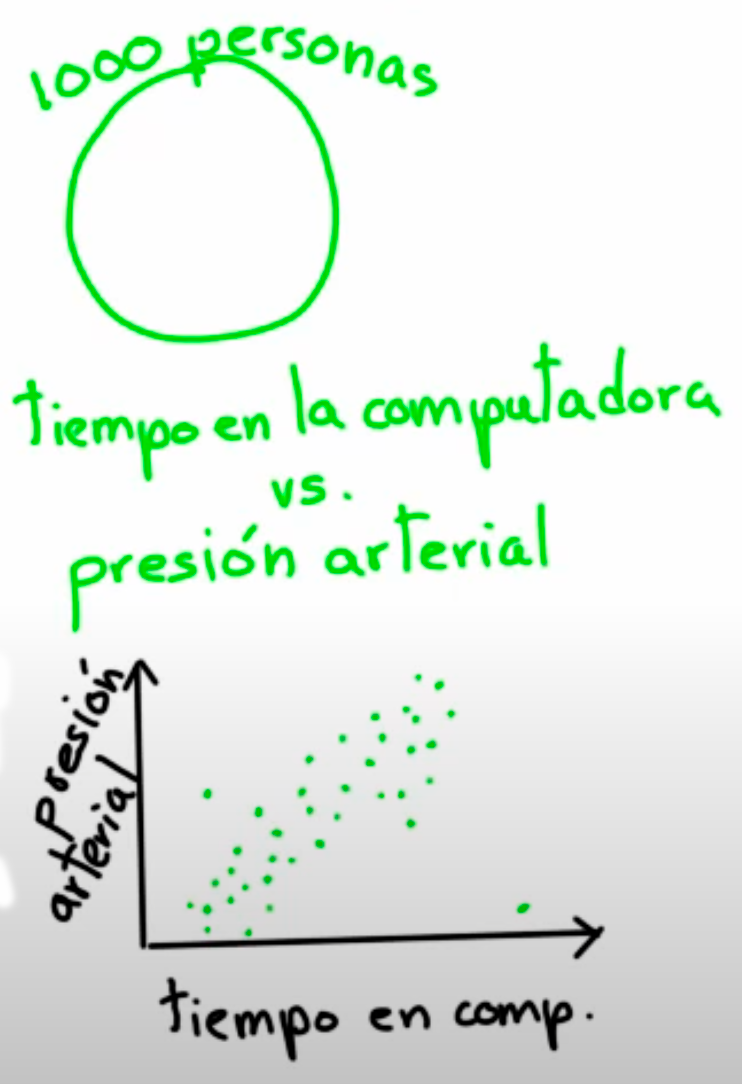 1000 personas
tiempo en la computadora
vs.
presión arterial
presión
arterial
tiempo en comp.